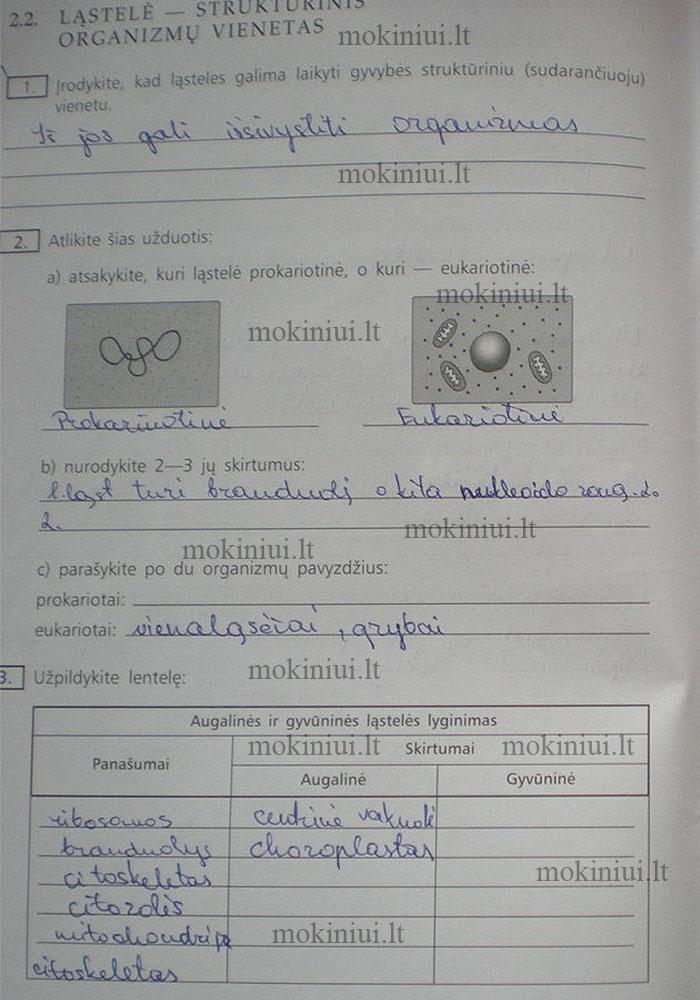 2.2. LĄSTELĖ — STRUKTŪRINIS
ORGANIZMŲ VIENETAS mokiniui.lt
1. Įrodykite, kad ląsteles galima laikyti gyvybės struktūriniu (sudarančiuoju)
vienetu.
Iš jos gali išsivystiti organizmas
mokiniui.lt
2. Atlikite šias užduotis:
a) atsakykite, kuri ląstelė prokariotinė, o kuri — eukariotinė:
mokiniui.lt
mokiniui.lt
Eukariotinė
b) nurodykite 2—3 jų skirtumus:
turi branduolį, o kita nukleoido
2.
mokiniui.lt
mokiniui.lt
c) parašykite po du organizmų pavyzdžius:
prokariotai:
eukariotai: vienaląsčiai, grybai
3. Užpildykite lentelę: mokiniui.lt
Augalinės ir gyvūninės ląstelės lyginimas
Panašumai mokiniui.lt Skirtumai mokiniui.lt
Augalinė Gyvūninė
ribosomos centrinė vakuolė
branduolys choroplastas
citoskeletas mokiniui.lt
citozolis
mokiniui.lt
citoskeletas